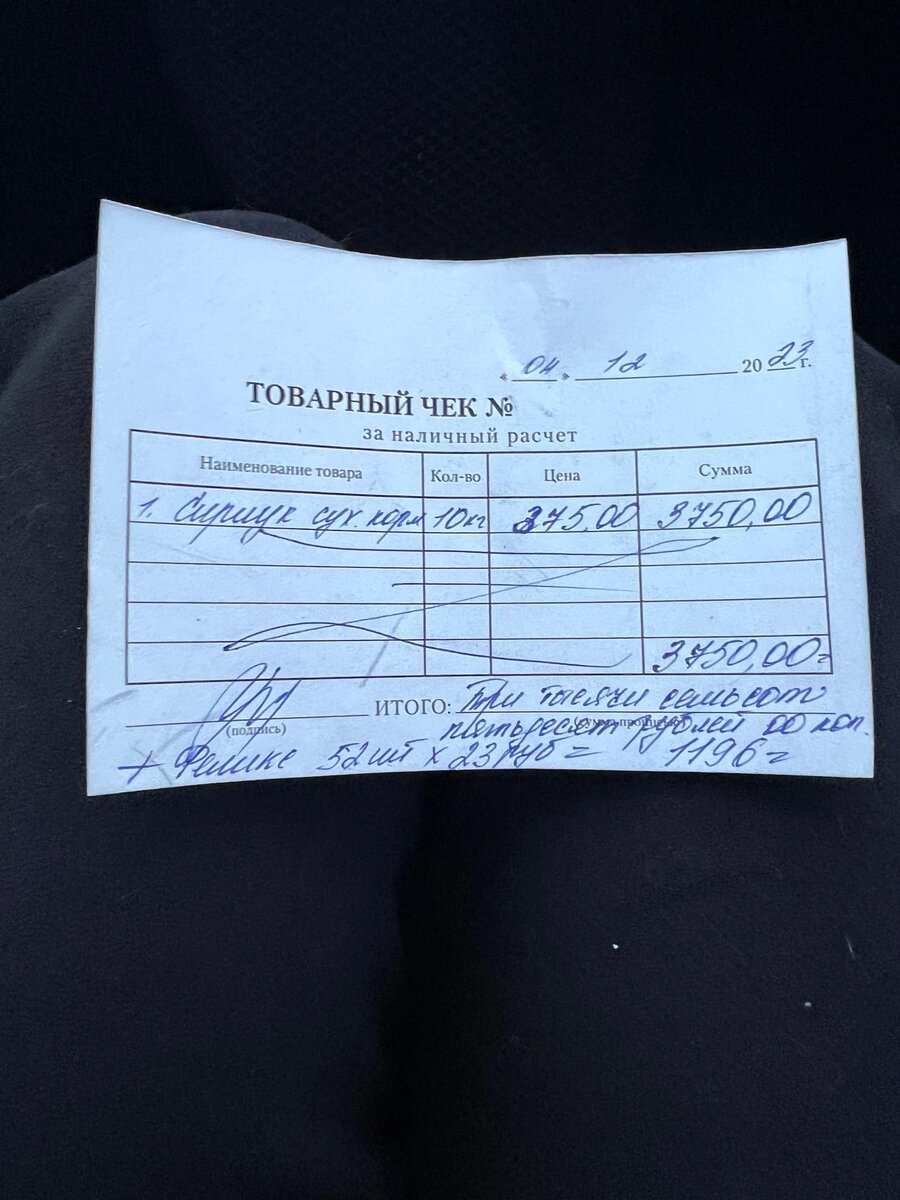 « 04 » 12 2023 г.
ТОВАРНЫЙ ЧЕК №
за наличный расчет
Наименование товара Кол-во Цена Сумма
1. Сириук сух. корм 10кг 375,00 3750,00
3750,00=
ИТОГО: Три тысячи семьсот
(подпись) (сумма прописью)
пятьдесят рублей 00 коп.
+ Феликс 52 шт х 23 руб = 1196=